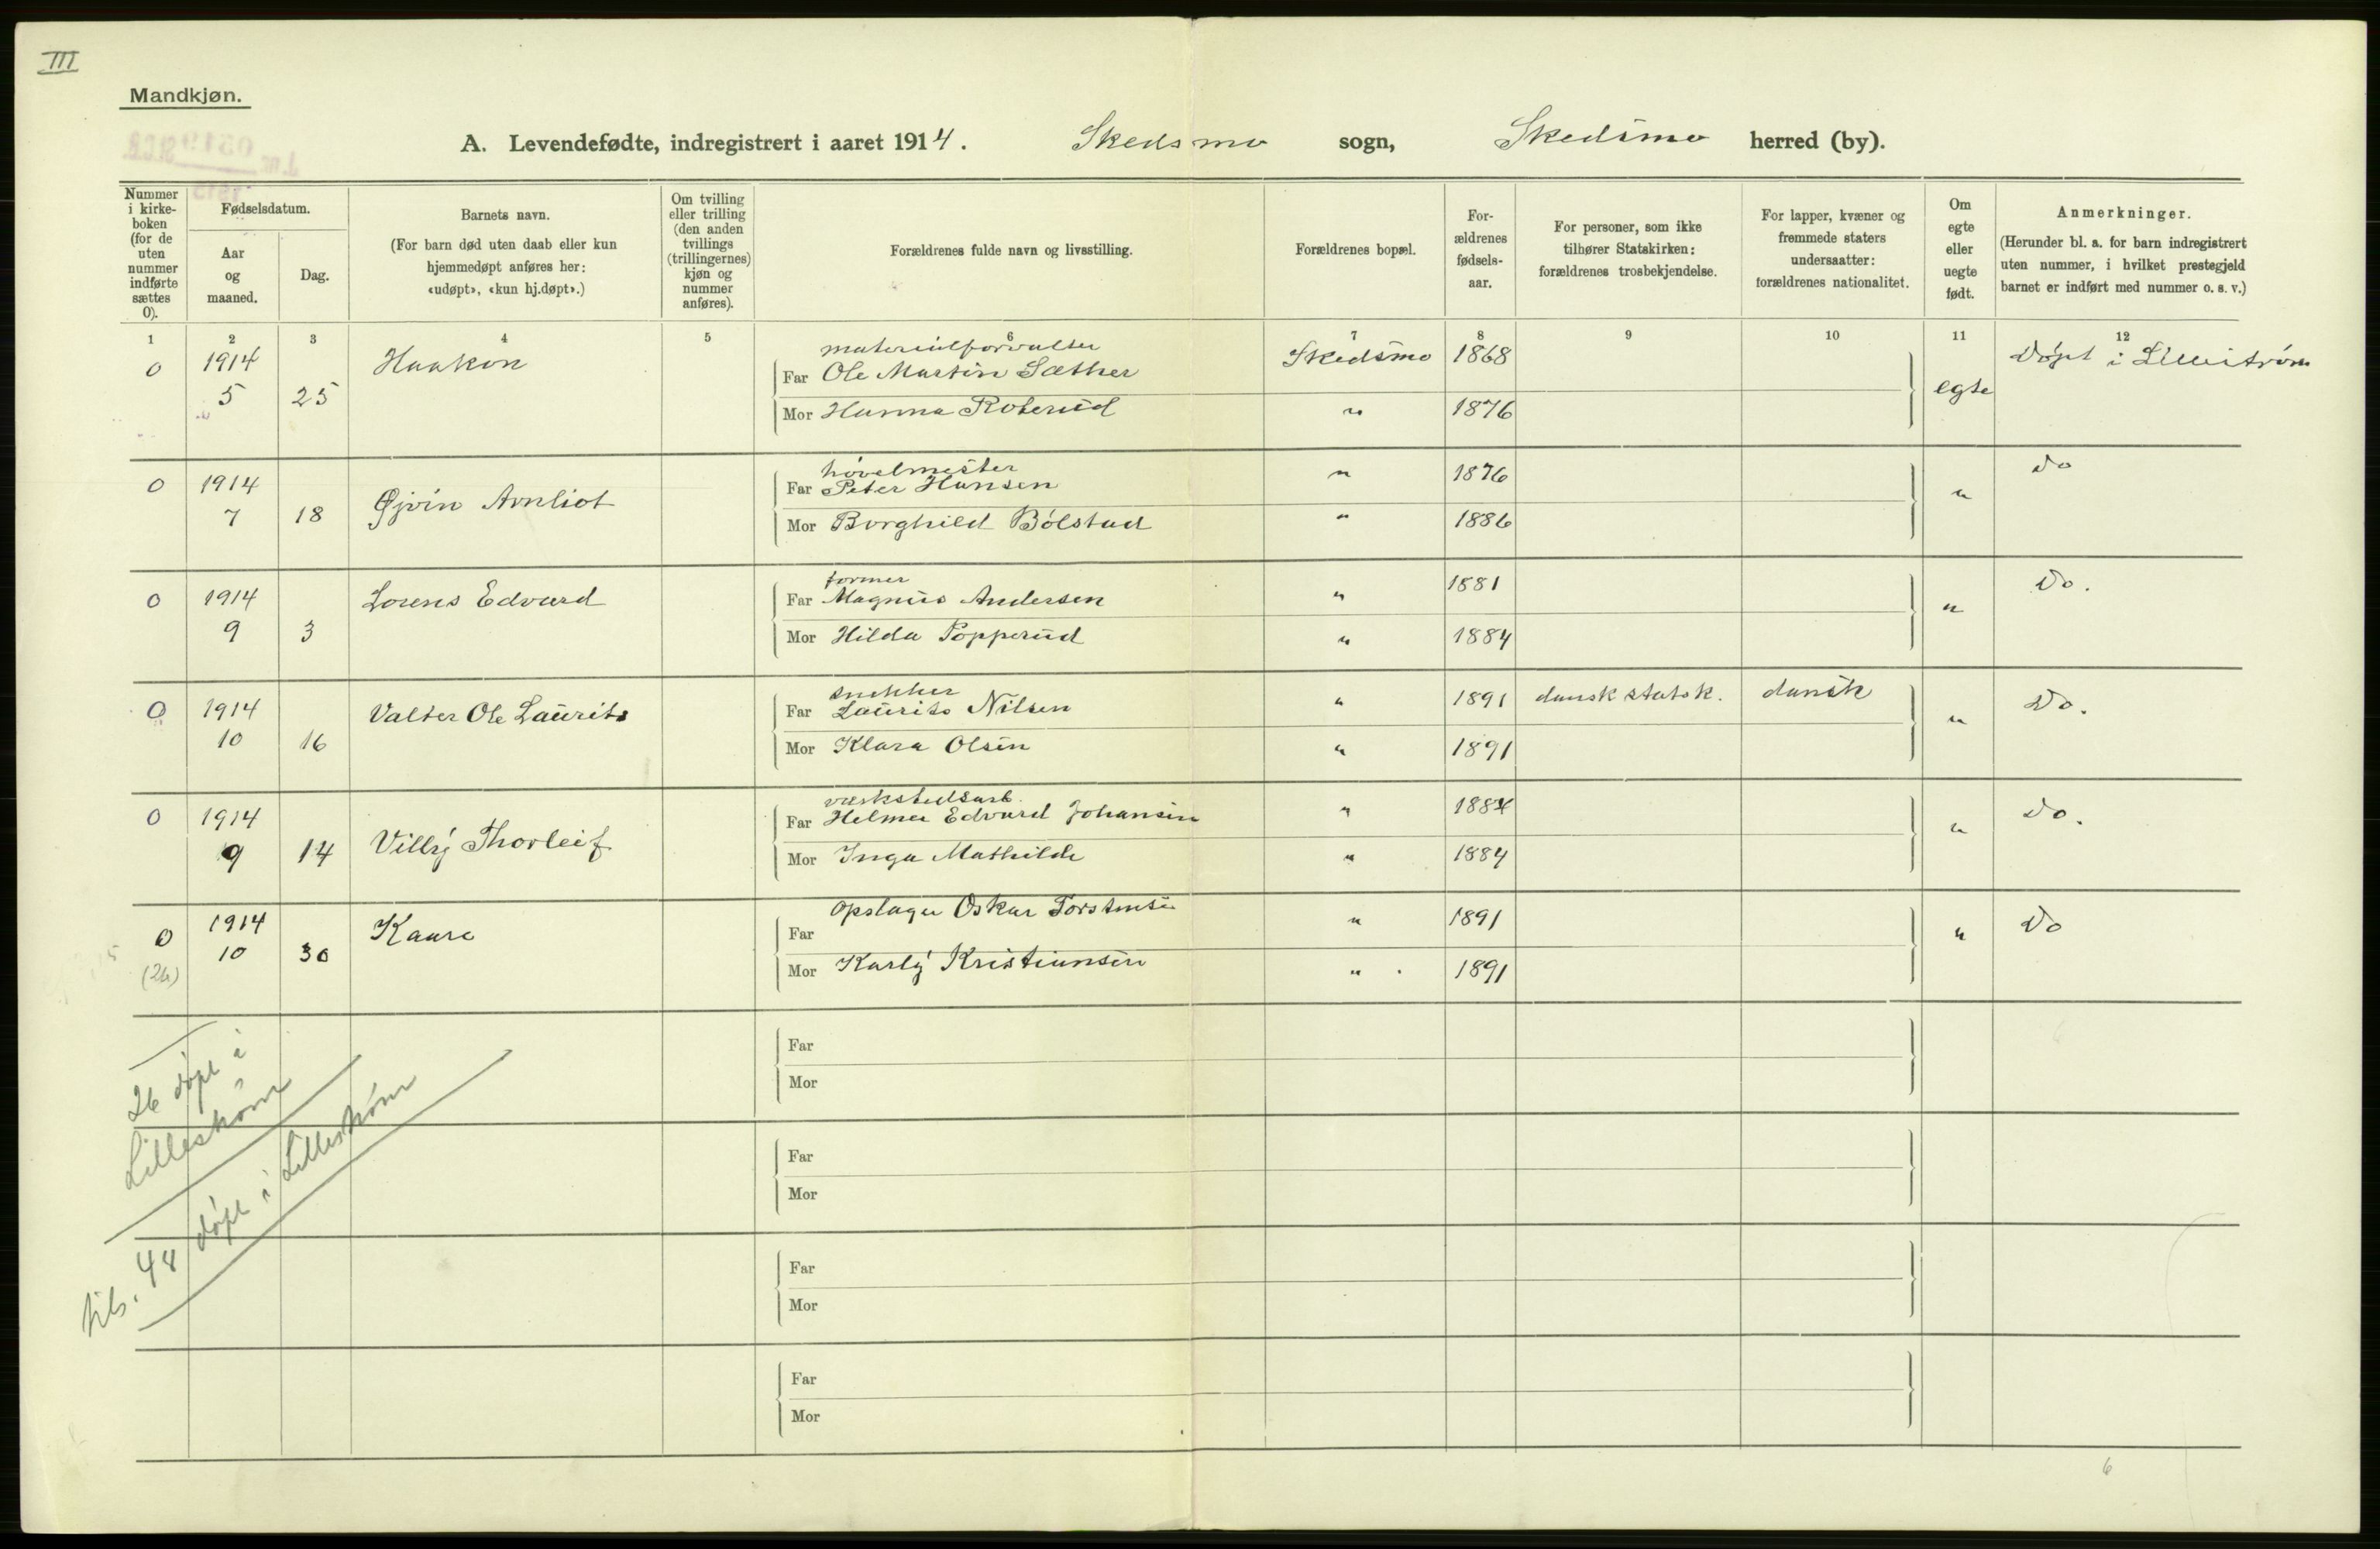 III
Mandkjøn.
A. Levendefødte, indregistrert i aaret 1914. Skedsmo sogn, Skedsmo herred (by).
Nummer i kirke-boken (for de uten nummer indførte sættes 0).
Fødselsdatum.
Aar og maaned.
Dag.
Barnets navn.
(For barn død uten daab eller kun hjemmedøpt anføres her: «udøpt», «kun hj.døpt».)
Om tvilling eller trilling (den anden tvillings (trillingernes) kjøn og nummer anføres).
Forældrenes fulde navn og livsstilling.
Forældrenes bopæl.
For-ældrenes fødsels-aar.
For personer, som ikke tilhører Statskirken: forældrenes trosbekjendelse.
For lapper, kvæner og fremmede staters undersaatter: forældrenes nationalitet.
Om egte eller uegte født.
Anmerkninger.
(Herunder bl. a. for barn indregistrert uten nummer, i hvilket prestegjeld barnet er indført med nummer o. s. v.)
1 2 3 4 5 6 7 8 9 10 11 12
0 1914 5 25 Haakon
materialforvalter
Far Ole Martin Sæther Skedsmo 1868
Mor Hanna Roterud " 1876
egte Døpt i Lillestrøm
0 1914 7 18 Øjvin Arnliot
høvelmester
Far Peter Hansen " 1876
Mor Borghild Bölstad " 1886
" Do
0 1914 9 3 Lorens Edvard
former
Far Magnus Andersen " 1881
Mor Hilda Popperud " 1884
" Do.
0 1914 10 16 Valter Ole Laurits
snekker
Far Laurits Nilsen " 1891 dansk statsk. dansk
Mor Klara Olsen " 1891
" Do.
0 1914 9 14 Villy Thorleif
verkstedsarb.
Far Helmer Edvard Johansen " 1884
Mor Inga Mathilde " 1884
" Do.
0 (26) 1914 10 30 Kaare
Far Opslager Oskar Torstensen " 1891
Mor Karly Kristiansen " 1891
" Do
Far
Mor
Far
Mor
Far
Mor
Far
Mor
26 døpt i
Lillestrøm
tils. 48 døpt i Lillestrøm
6